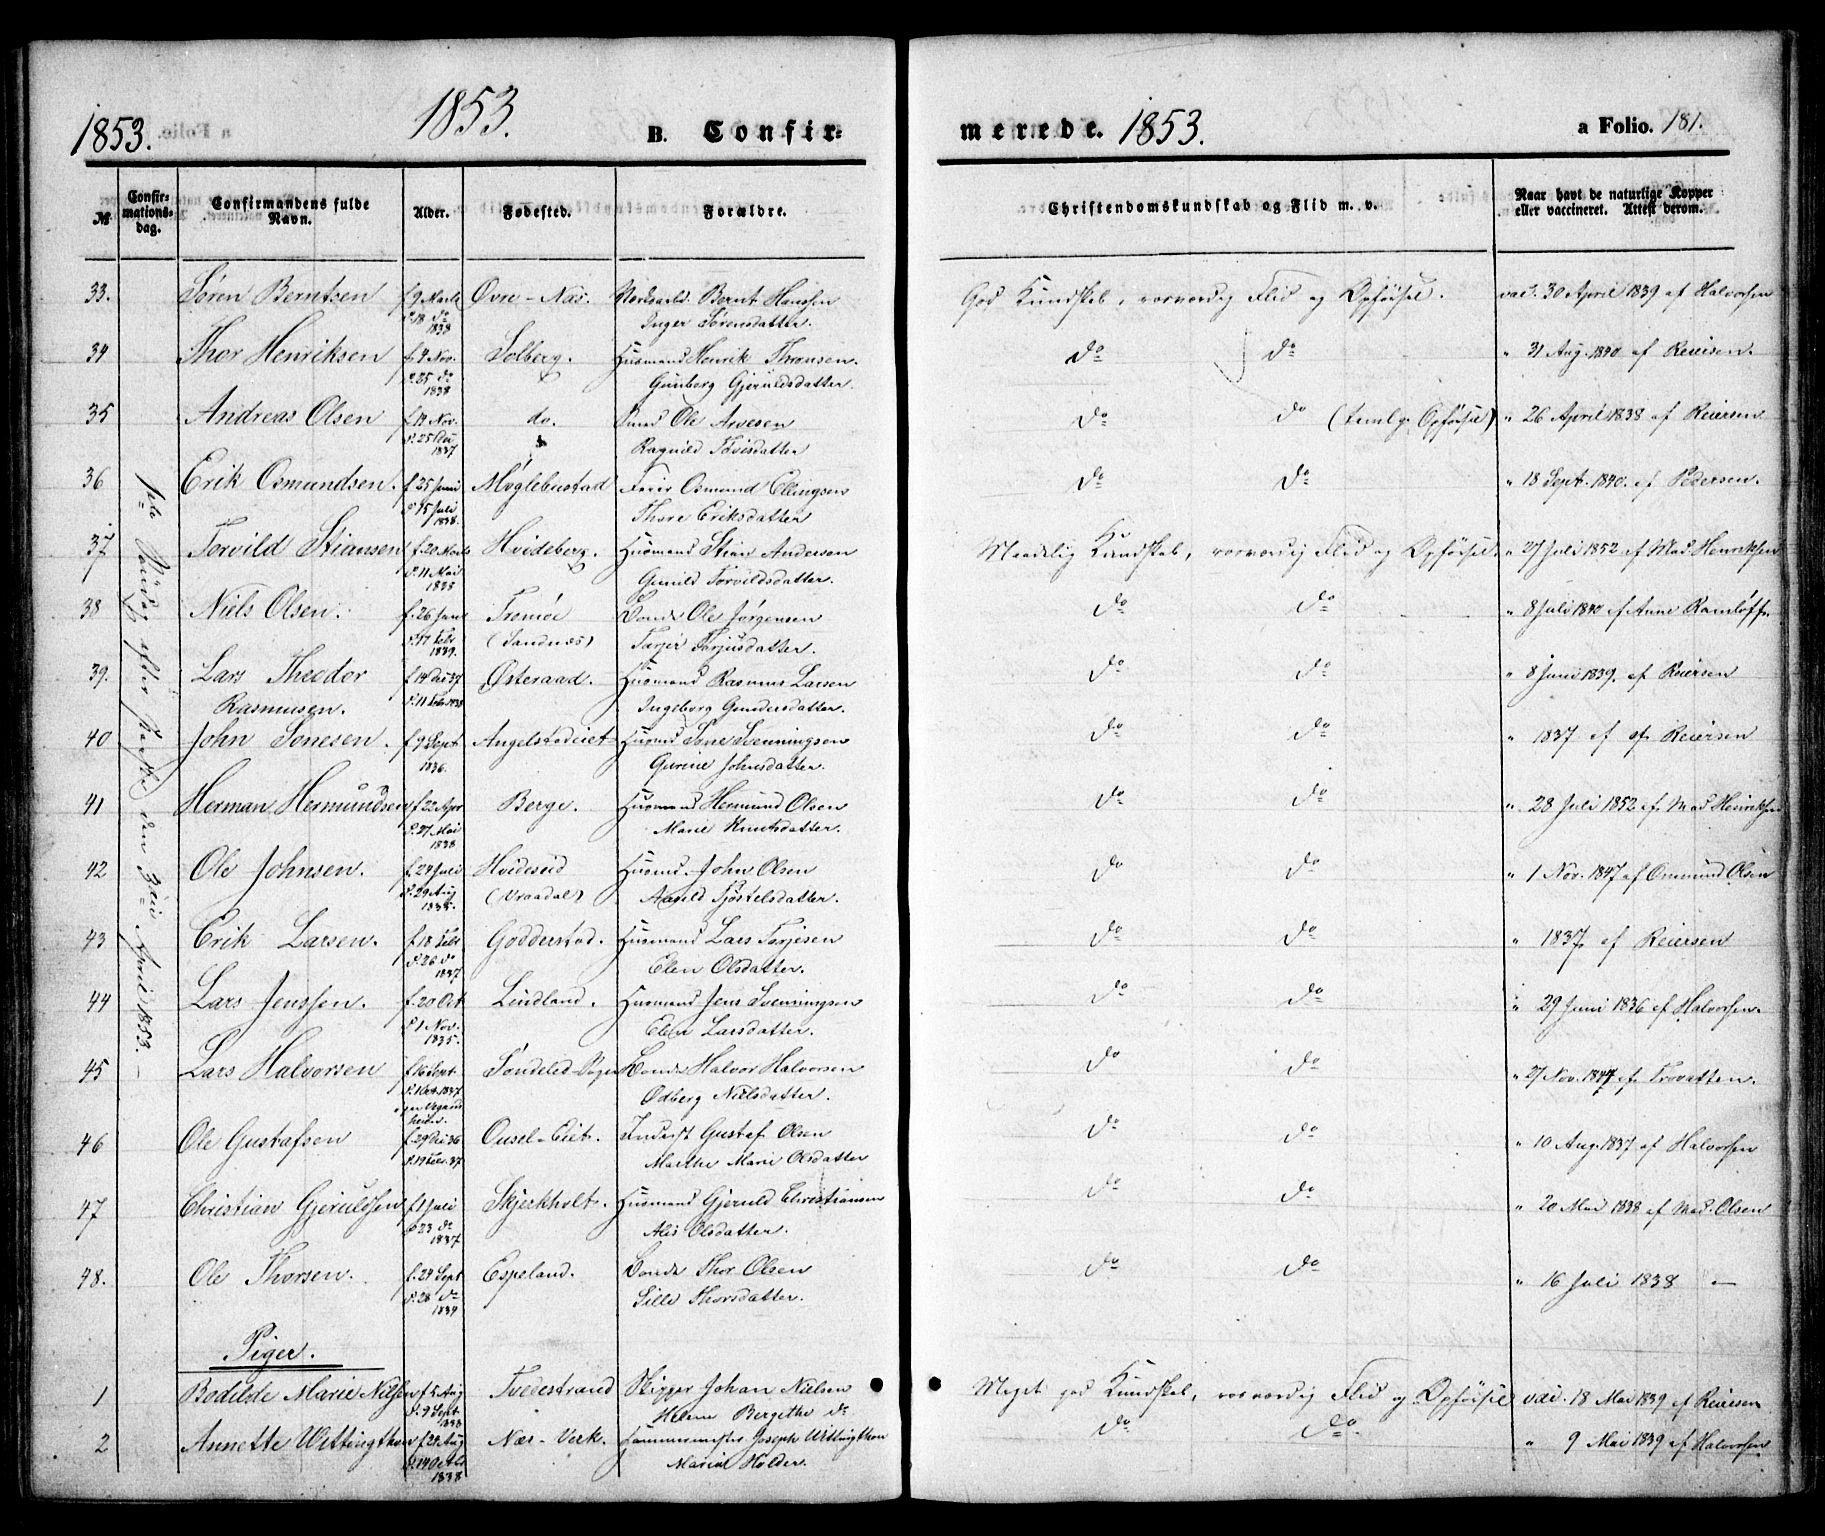 1853. 1853. B. Confir- merede. 1853. a Folio. 181.
№ Confir-mations-dag. Confirmandens fulde Navn. Alder. Fødested. Forældre. Christendomskundskab og Flid m. v. Naar havt de naturlige Kopper eller vaccineret. Attest derom.
1ste Søndag efter Paaske den 3die April 1853.
33. Søren Berntsen f. 9 Marts d. 18 do 1838 Øvre-Næs. Bernt Hanssen God Kundskab, Flid og Opførsel. vac. 30 April 1839 af Halvorsen
Inger Sørensdatter.
34 Thor Henriksen f. 4 Nov. d. 25 do 1838 Solberg. Husmand Henrik Thorsen. do do " 31 Aug. 1840 af Reiersen.
Gunborg Gjeruldsdatter.
35 Andreas Olsen f. 14 Nov. d. 25 Dec 1837 do. Ole Arvesen do do (temlg. Opførsel) " 26 April 1838 af Reiersen
Ragnild
36 Erik Osmundsen. f. 25 Juni d. 15 Juli 1838. Møglebustad Osmund Ellingsen do do " 18 Sept. 1840. af Pedersen.
Thore Eriksdatter
37 Torvild Stiansen f. 20 Marts d. 11 Mai Hvideberg. Husmand Stian Andersen Maadelig Kundskab, Flid og Opførsel. " 27 Juli 1852 af Mad. Henriksen
Gunild Torvildsdatter.
38 Niels Olsen. f. 26 Jan d. 17 Febr 1839. Tromøe Bonde Ole Jørgensen do do " 8 Juli 1840 af Anne
(Sandnæs) Torjusdatter.
39. Lars Theodor f. 14 Dec 37 Østeraad. Husmand Rasmus Larsen do do " 8 Juni 1839. af Reiersen
Rasmusen. d. 11 Febr 1838 Ingeborg Gundersdatter.
40 John Tonesen. f. 9 Sept 1836. Angelstadeiet Husmd Tone Svenningsen do do " 1837 af Reiersen
Gurine Johnsdatter.
41 Herman Hermundsen f. 22 Apr d. 27 Mai 1838 Berge. Husmand Hermund Olsen do do " 28 Juli 1852 af Mad Henriksen
Marie Knutsdatter.
42 Ole Johnsen. f. 24 Juli d. 29 Aug 1838. Hvideseid Husmd. John Olsen do do " 1 Nov. 1847 af Omund Olsen
(Vraadal) Aagild Tjøstelsdatter.
43 Erik Larsen. f. 18 Febr d. 26 do 1837 Godderstad. Husmand Lars Torjesen do do " 1837 af Reiersen
Elen Olsdatter.
44 Lars Jenssen. f. 20 Oct d. 1 Nov. 1835. Lindland. Husmand Jens Svenningsen do do " 29 Juni 1836 af Halvorsen.
Elen Larsdatter.
45 Lars Halvorsen f. 16 Sept. d. 1 Oct. 1837 Søndeled Bonde Halvor Halvorsen do do " 27 Nov. 1847 af Trovatten.
Odberg Nielsdatter.
46 Ole Gustafsen f. 29 Dec 36 d. 19 Febr. 37 Ousel-Eiet. Inderst Gustaf Olsen do do " 10 Aug. 1837 af Halvorsen
Marthe Marie Olsdatter
47 Christian Gjeruldsen f. 1 Juli d. 23 do 1837 Skjerkholt. Husmand Gjeruld Christiansen do do " 20 Mai 1838 af Mad. Olsen
Alis Olsdatter.
48. Ole Thorsen. f. 24 Sept d. 28 do Espeland. Bonde Thor Olsen do do " 16 Juli 1838 —
Sille Thorsdatter.
Piger.
1 Bodilde Marie Nilsen f. 5 Aug d. 9 Sept 1838 Tvedestrand Skipper Johan Nielsen Meget god Kundskab, Flid og Opførsel vac. 18 Mai 1839 af Reiersen
Helene Bergithe do
2 Annette Wittingthon f. 24 Aug d. 14 Octb 1838 Næs-Verk. Hammermester Joseph Wittingthon do do " 9 Mai 1839 af Halvorsen
Maria Holder.